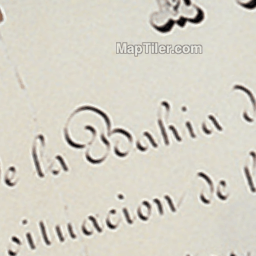 MapTiler.com
de la Bahia d
situacion de l